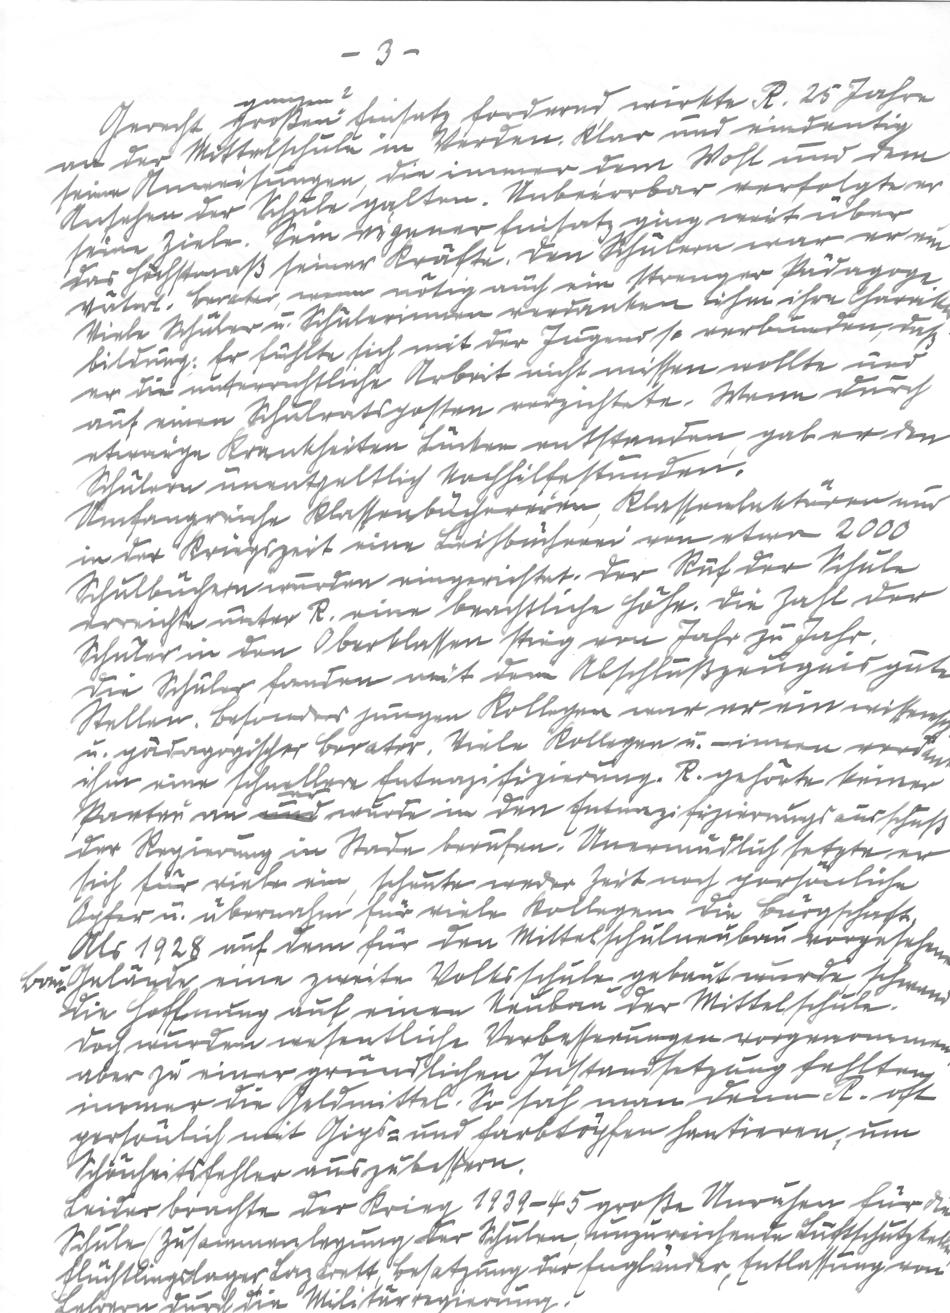 - 3 -
ganzen?
Gerecht, großen Einsatz fordernd wirkte R. 25 Jahre
an der Mittelschule in Verden. Klar und eindeutig
seine Anweisungen, die immer dem Wohl und dem
Ansehen der Schule galten. Unbeirrbar verfolgte er
seine Ziele. Sein eigener Einsatz ging weit über
das Höchstmaß seiner Kräfte. Den Schülern war er ein
väterl. Berater, wenn nötig auch ein strenger Pädagoge.
Viele Schüler u. Schülerinnen verdanken ihm ihre Charakter
bildung. Er fühlte sich mit der Jugend so verbunden, daß
er die unterrichtliche Arbeit nicht missen wollte und
auf einen Schulratsposten verzichtete. Wenn durch
etwaige Krankheiten Lücken entstanden, gab er den
Schülern unentgeltlich Nachhilfestunden.
Umfangreiche Klassenbüchereien, Klassenlektüren und
in der Kriegszeit eine Leihbücherei von etwa 2000
Schulbüchern wurden eingerichtet. Der Ruf der Schule
erreichte unter R. eine beachtliche Höhe. Die Zahl der
Schüler in den Oberklassen stieg von Jahr zu Jahr.
Die Schüler fanden mit dem Abschlußzeugnis gute
Stellen. Besonders jungen Kollegen war er ein wissensch
u. pädagogischer Berater. Viele Kollegen u. -innen verdanken
ihm eine schnellere Entnazifizierung. R. gehörte keiner
er
Partei an und wurde in den Entnazifizierungsausschuß
der Regierung in Stade berufen. Unermüdlich setzte er
sich für viele ein, scheute weder Zeit noch persönliche
Opfer u. übernahm für viele Kollegen die Bürgschaft.
Als 1928 auf dem für den Mittelschulneubau vorgesehenen
Bau Gelände eine zweite Volksschule gebaut wurde, schwand
die Hoffnung auf einen Neubau der Mittelschule.
Doch wurden wesentliche Verbesserungen vorgenommen,
aber zu einer gründlichen Instandsetzung fehlten
immer die Geldmittel. So sah man denn R. oft
persönlich mit Gips= und Farbtöpfen hantieren, um
Schönheitsfehler auszubessern.
Leider brachte der Krieg 1939-45 große Unruhen für die
Schule (Zusammenlegung der Schulen, unzureichende Luftschutzkeller
Flüchtlingslager, Lazarett, Besatzung der Engländer, Entlassung von
Lehrern durch die Militärregierung.